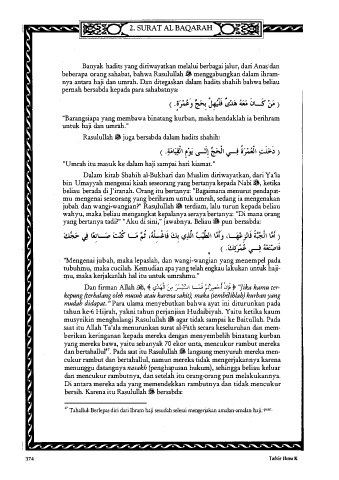 2. SURAT AL BAQARAH
Banyak hadits yang diriwayatkan melalui berbagai jalur, dari Anas dan
beberapa orang sahabat, bahwa Rasulullah ﷺ menggabungkan dalam ihram-
nya antara haji dan umrah. Dan ditegaskan dalam hadits shahih bahwa beliau
pernah bersabda kepada para sahabatnya:
( مَنْ كَـانَ مَعَهُ هَدْيٌ فَلْيُهِلَّ بِحَجٍّ وَعُمْرَةٍ. )
"Barangsiapa yang membawa binatang kurban, maka hendaklah ia berihram
untuk haji dan umrah."
Rasulullah ﷺ juga bersabda dalam hadits shahih:
( دَخَلَتِ الْعُمْرَةُ فِـي الْحَجِّ إِلَـى يَوْمِ الْقِيَامَةِ. )
"Umrah itu masuk ke dalam haji sampai hari kiamat."
Dalam kitab Shahih al-Bukhari dan Muslim diriwayatkan, dari Ya'la
bin Umayyah mengenai kisah seseorang yang bertanya kepada Nabi ﷺ, ketika
beliau berada di J'iranah. Orang itu bertanya: "Bagaimana menurut pendapat-
mu mengenai seseorang yang berihram untuk umrah, sedang ia mengenakan
jubah dan wangi-wangian?" Rasulullah ﷺ terdiam, lalu turun kepada beliau
wahyu, maka beliau mengangkat kepalanya seraya bertanya: "Di mana orang
yang bertanya tadi?" "Aku di sini," jawabnya. Beliau ﷺ pun bersabda:
( أَمَّا الْجُبَّةُ فَانْزِعْهَـا، وَأَمَّا الطِّيْبُ الَّذِي بِكَ فَاغْسِلْهُ، ثُمَّ مَـا كُنْتَ صَـانِعًا فِي حَجِّكَ
فَاصْنَعْهُ فِـي عُمْرَتِكَ. )
"Mengenai jubah, maka lepaslah, dan wangi-wangian yang menempel pada
tubuhmu, maka cucilah. Kemudian apa yang telah engkau lakukan untuk haji-
mu, maka kerjakanlah hal itu untuk umrahmu."
Dan firman Allah ﷻ, ﴿ فَإِنْ أُحْصِرْتُمْ فَمَا اسْتَيْسَرَ مِنَ الْهَدْيِ ﴾ "Jika kamu ter-
kepung (terhalang oleh musuh atau karena sakit), maka (sembelihlah) kurban yang
mudah didapat." Para ulama menyebutkan bahwa ayat ini diturunkan pada
tahun ke-6 Hijrah, yakni tahun perjanjian Hudaibiyah. Yaitu ketika kaum
musyrikin menghalangi Rasulullah ﷺ agar tidak sampai ke Baitullah. Pada
saat itu Allah Ta'ala menurunkan surat al-Fath secara keseluruhan dan mem-
berikan keringanan kepada mereka dengan menyembelih binatang kurban
yang mereka bawa, yaitu sebanyak 70 ekor unta, mencukur rambut mereka
dan bertahallul. Pada saat itu Rasulullah ﷺ langsung menyuruh mereka men-
cukur rambut dan bertahallul, namun mereka tidak mengerjakannya karena
menunggu datangnya nasakh (penghapusan hukum), sehingga beliau keluar
dan mencukur rambutnya, dan setelah itu orang-orang pun melakukannya.
Di antara mereka ada yang memendekkan rambutnya dan tidak mencukur
bersih. Karena itu Rasulullah ﷺ bersabda:
Tahallul: Berlepas diri dari ihram haji sesudah selesai mengerjakan amalan-amalan haji.
374
Tafsir Ibnu K